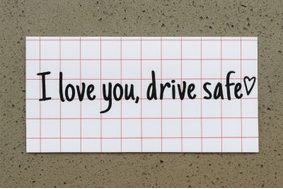 I love you, drive safe♡